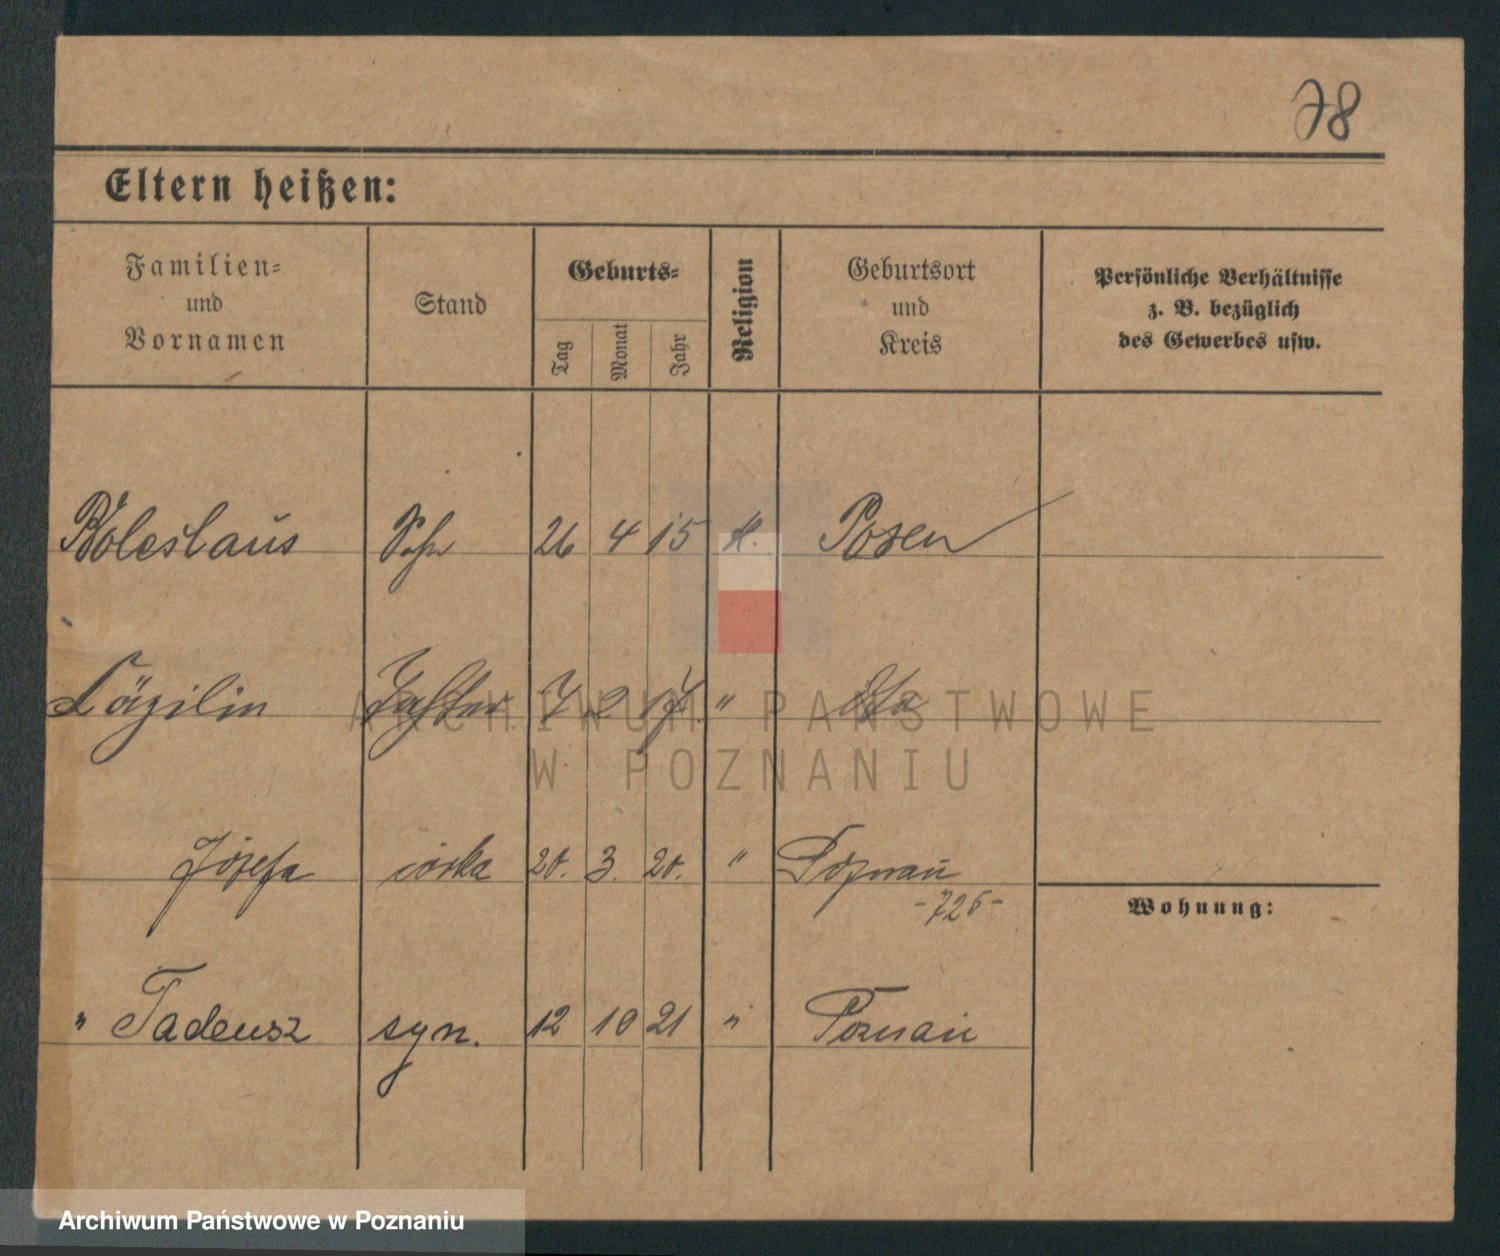 78
Eltern heißen:
Familien-
und
Vornamen
Stand
Geburts-
Tag
Monat
Jahr
Religion
Geburtsort
und
Kreis
Persönliche Verhältnisse
z. B. bezüglich
des Gewerbes usw.
Boleslaus Sohn 26 4 15 K. Posen
Cäzilin Tochter 7 2 17 " dto
Józefa córka 20. 3. 20. " Poznań
-725-
Wohnung:
" Tadeusz syn. 12 10 21 " Poznań
ARCHIWUM PAŃSTWOWE
W POZNANIU
Archiwum Państwowe w Poznaniu